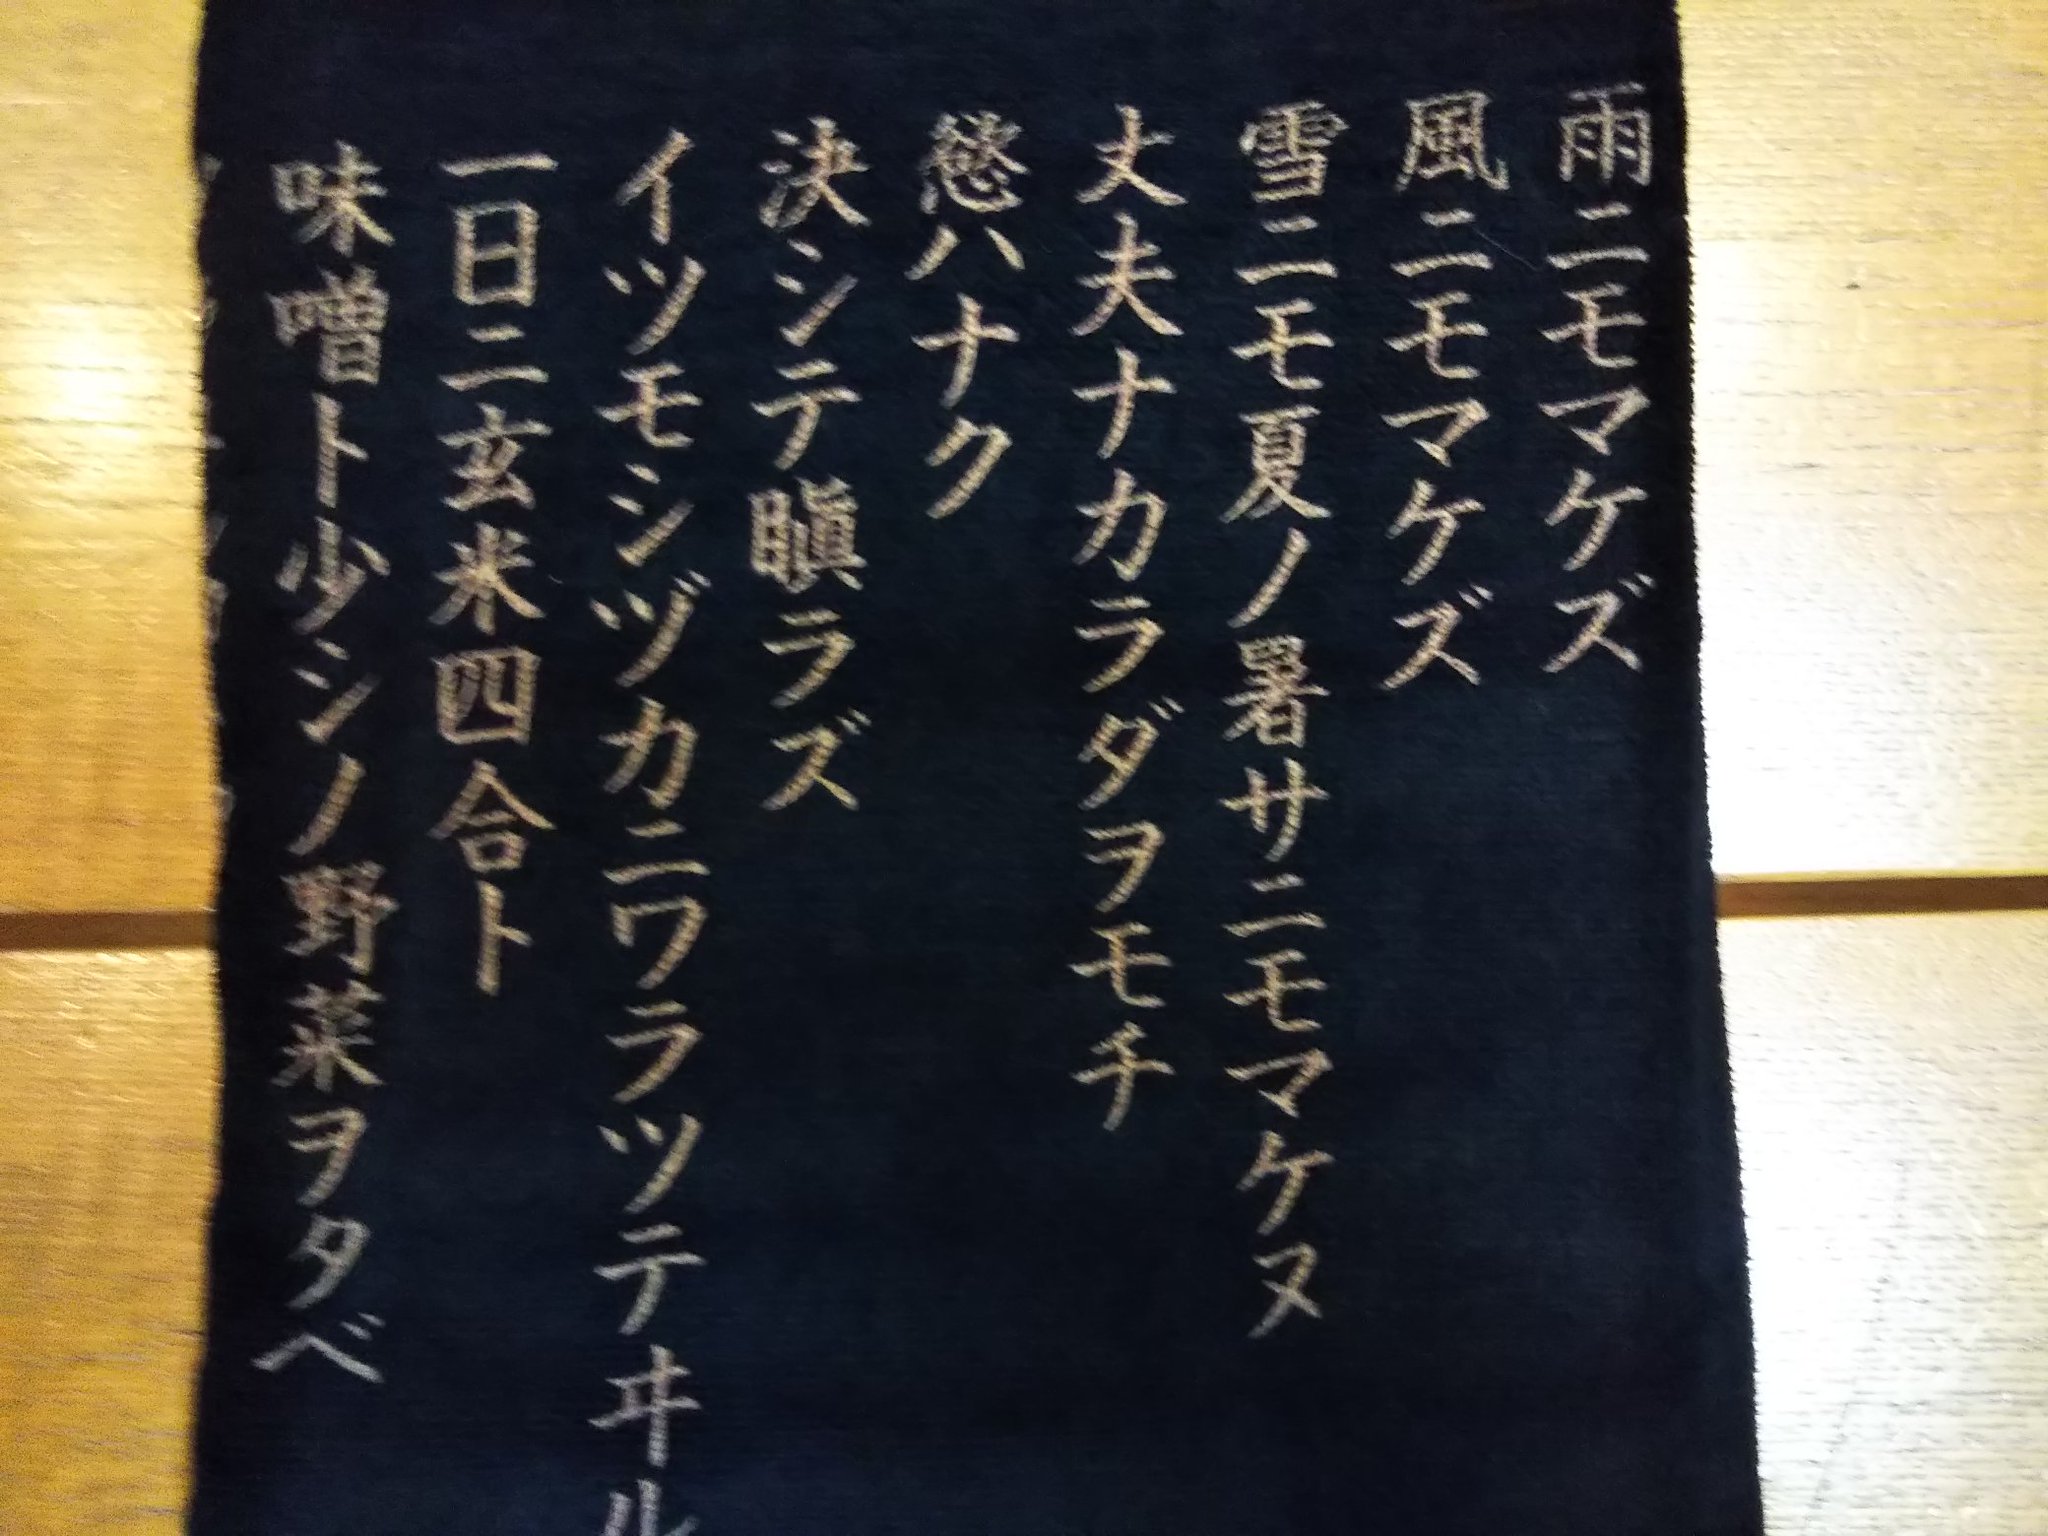 雨ニモマケズ
風ニモマケズ
雪ニモ夏ノ暑サニモマケヌ
丈夫ナカラダヲモチ
慾ハナク
決シテ瞋ラズ
イツモシヅカニワラツテヰル
一日ニ玄米四合ト
味噌ト少シノ野菜ヲタベ